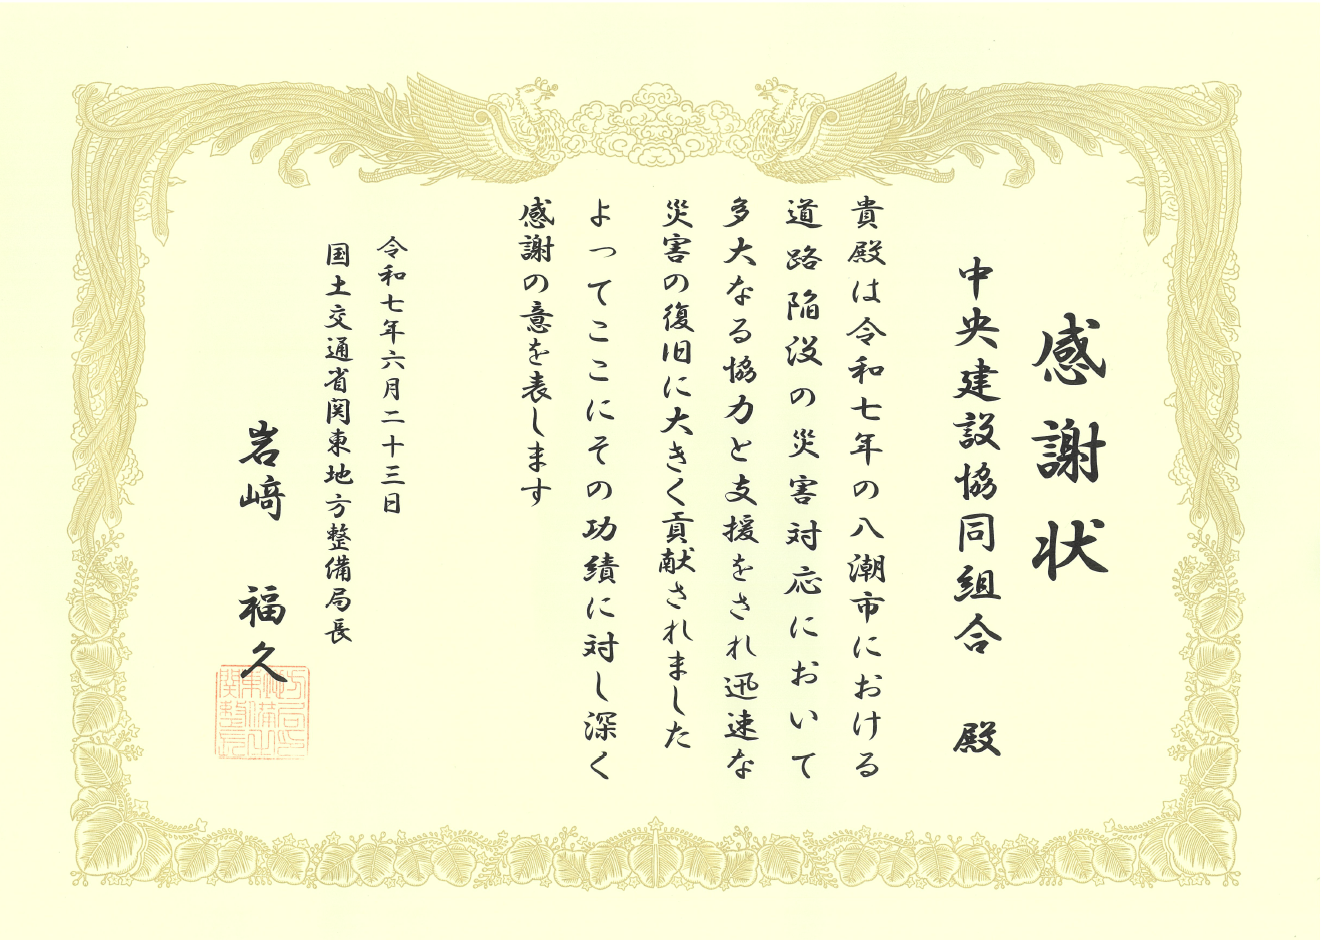 感謝状
中央建設協同組合 殿
貴殿は令和七年の八潮市における
道路陥没の災害対応において
多大なる協力と支援をされ迅速な
災害の復旧に大きく貢献されました
よってここにその功績に対し深く
感謝の意を表します
令和七年六月二十三日
国土交通省関東地方整備局長
岩﨑 福久